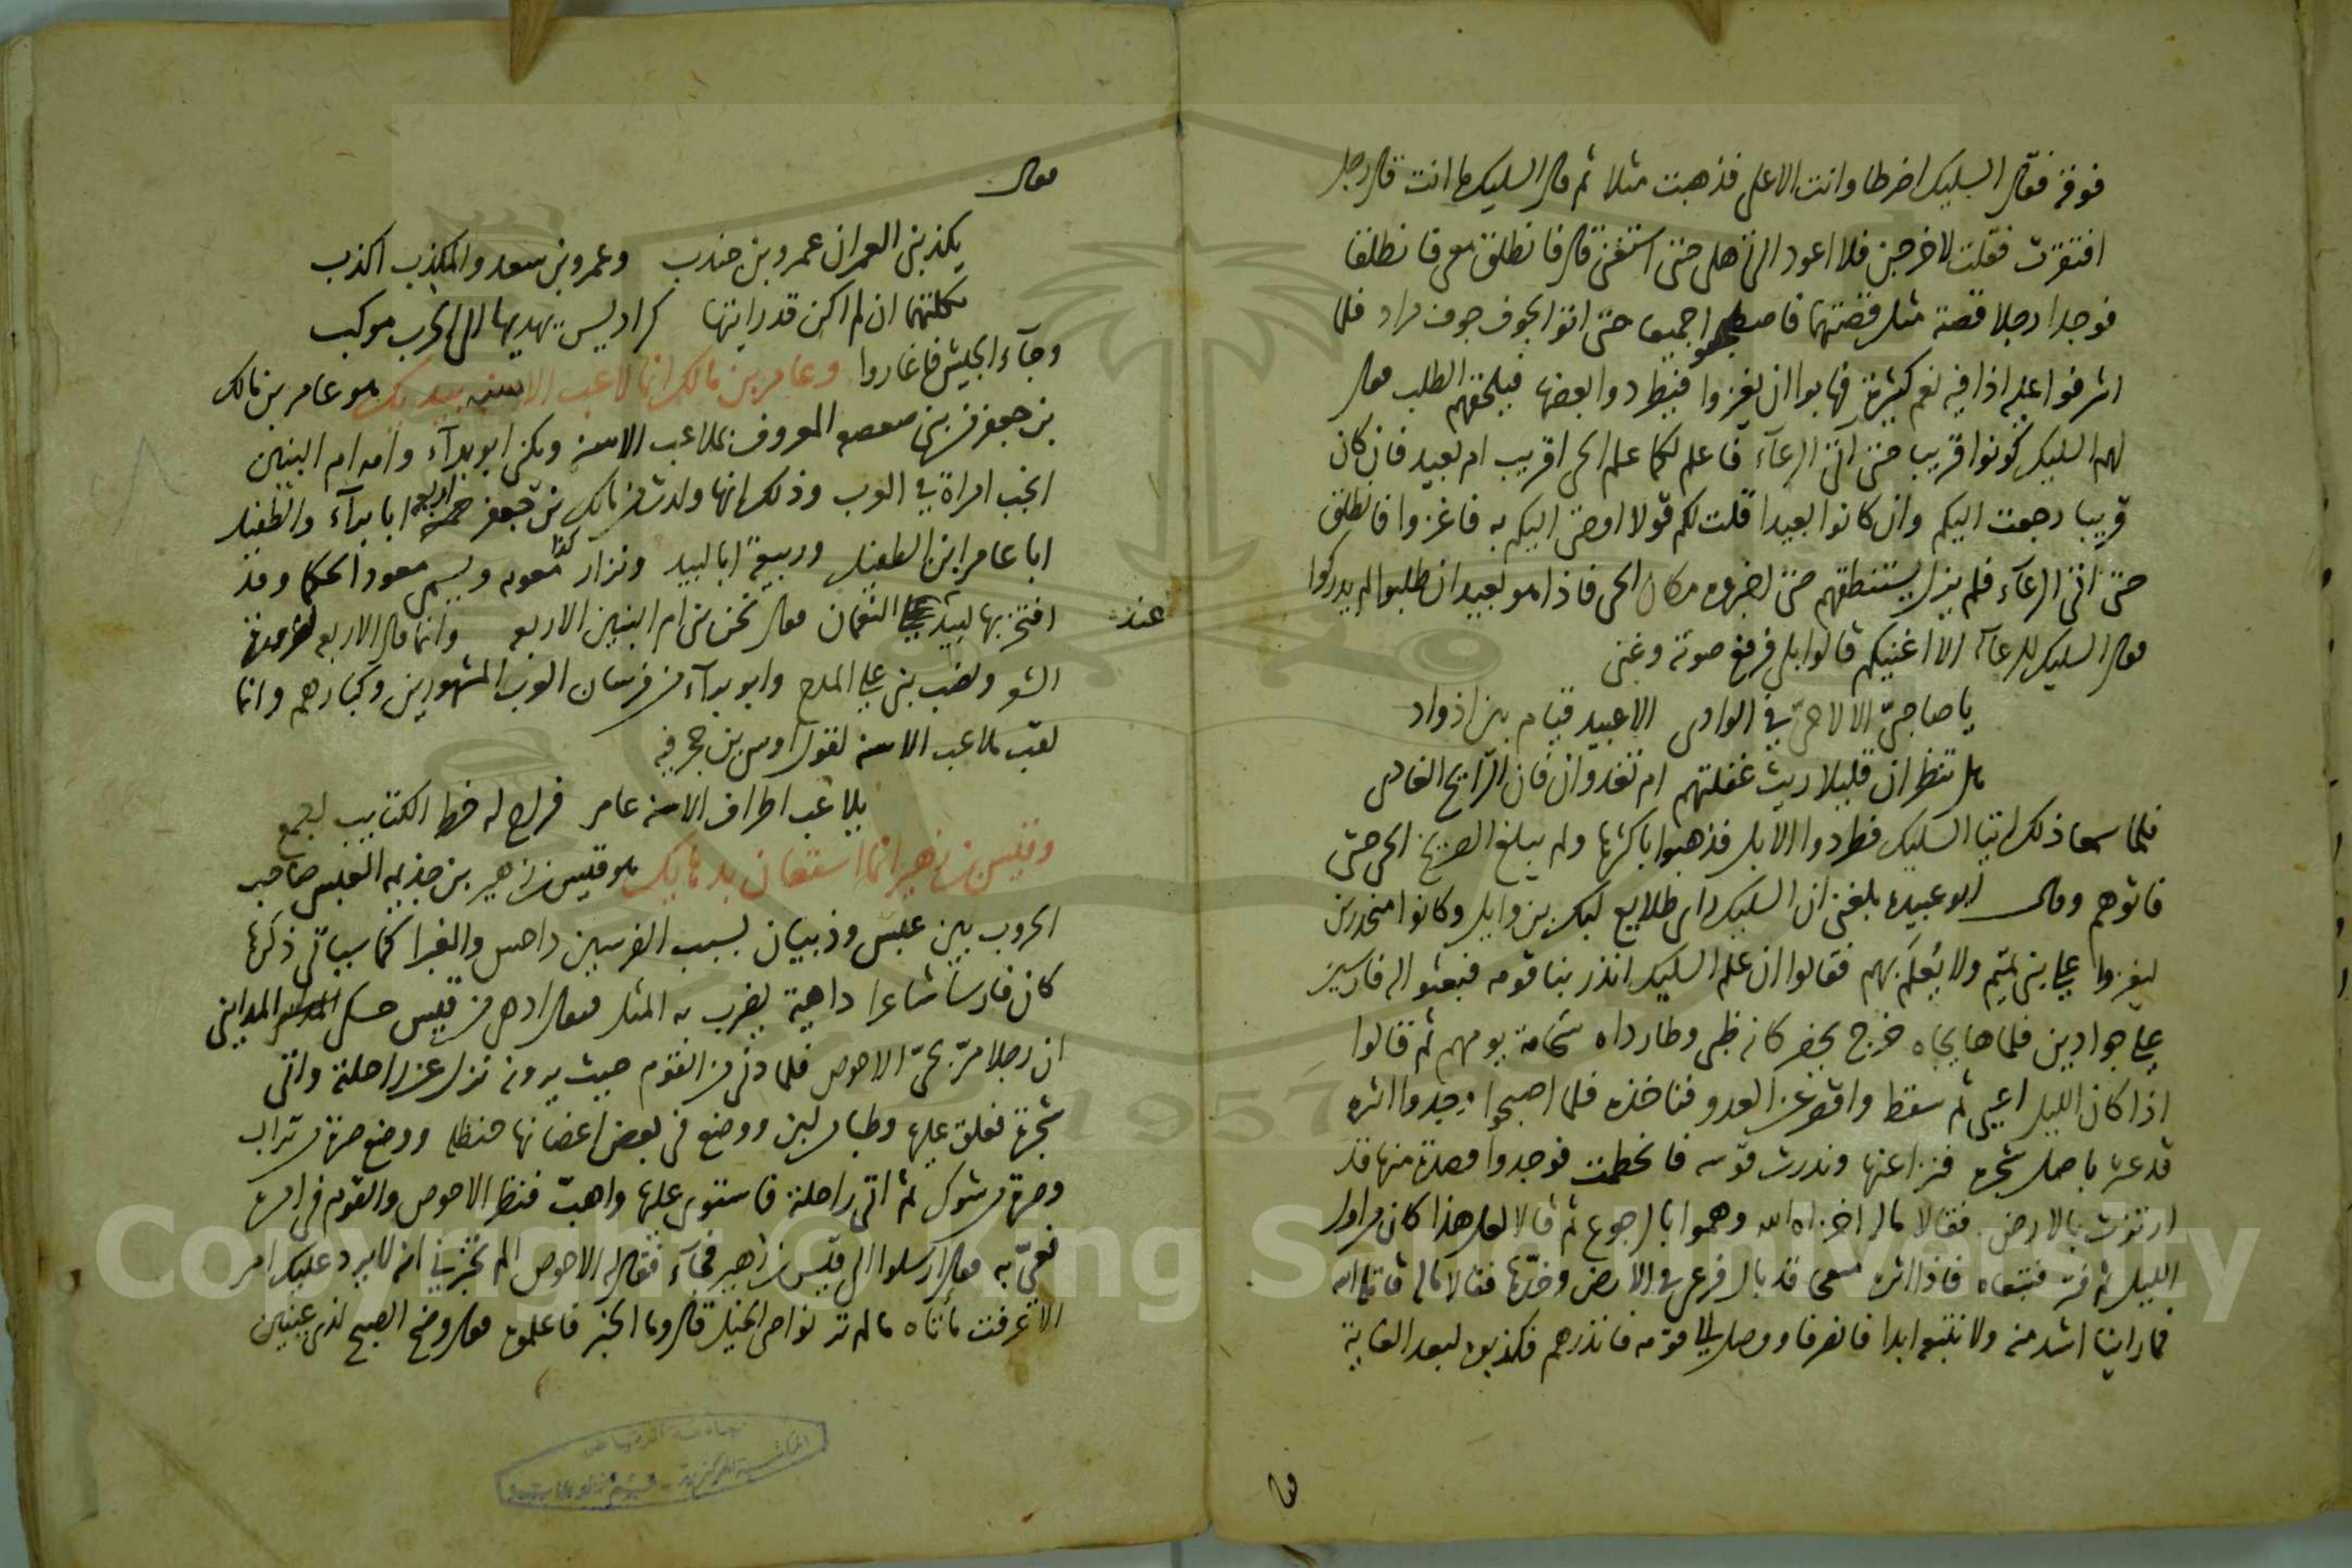 فوقه فقال السليك اضرطا وانت الاعلى فذهبت مثلا ثم قال السليك ما انت قال رجل
افتقرت فقلت لاخرجن فلا اعود الى اهلى حتى استغنى قال فانطلق معى فانطلقا
فوجدا رجلا قصته مثل قصتهما فاصطحبوا جميعا حتى اتوا الجوف جوف مراد فلما
اشرفوا عليه اذا فيه نعم كثيرة فهابوا ان يغزوا فيطردوا بعضها فيلحقهم الطلب فقال
لهم السليك كونوا قريبا حتى اتى الرعآء فاعلم لكما علم الحى اقريب ام بعيد فان كان
قريبا رجعت اليكم وان كانوا بعيدا قلت لكم قولا اوحى اليكم به فاغزوا فانطلق
حتى اتى الرعآء فلم يزل يستنطقهم حتى اخبروه مكان الحى فاذا هو بعيد ان طلبوا لم يدركوا
فقال السليك للرعآء الا اغنيكم قالوا بلى فرفع صوته وغنى
يا صاحبىّ الا لا حىّ فى الوادى الا عبيد قيام بين اذواد
هل تنظران قليلا ريث غفلتهم ام تغدوان فان الرايح الغادى
فلما سمعا ذلك اتيا السليك فطردوا الابل فذهبوا باكثرها ولم يبلغ الصريخ الحى حتى
فاتوهم وقال ابو عبيده بلغنى ان السليك راى طلايع لبكر بن وايل وكانوا منحدرين
ليغزوا على بنى تميم ولا يُعلَم بهم فقالوا ان علم السليك انذر بنا قومه فبعثوا اليه فارسين
على جوادين فلما هايجاه خرج يحضر كانه ظبى وطارداه سحابة يومهم ثم قالوا
اذا كان الليل اعيى ثم سقط واقصر عن العدو فناخذه فلما اصبحوا وجدوا اثره
قد عثر باصل شجرة فنزا عنها وندرت قوسه فانحطمت فوجدوا قصدة منها قد
ارتزت بالارض فقالا ماله اخزاه الله وهموا بالرجوع ثم قالا لعل هذا كان من اول
الليل ثم فتر فتبعاه فاذا اثره قد بال فرغى فى الارض وخدّها فقالا ماله قاتله الله
فما راينا اشد منه ولا نتبعه ابدا فانصرفا ووصل الى قومه فانذرهم فكذبوه لبعد الغاية
فقا
فقال
يكذبنى العمران عمرو بن جندب وعمرو بن سعد والمكذب اكذب
ثكلتهما ان لم اكن قد رايتها كراديس يهديها الى الحرب موكب
وجآء الجيش فاغاروا وعامر بن مالك انما لاعب الاسنه بيديك هو عامر بن مالك
بن جعفر من بنى صعصعه المعروف بملاعب الاسنه ويكنى ابو برآء وامه ام البنين
انجب امراة فى العرب وذلك انها ولدت من مالك بن جعفر خمسة اربعه ابا برآء والطفيل
ابا عامر ابن الطفيل وربيعة ابا لبيد ونزار كذا معويه ويسمى معود الحكما وقد
افتخر بها لبيد على عند النعمان فقال نحن بنى ام البنين الاربعه وانما قال الاربعه لضرورة
الشعر ونصب بنى على المدح وابو برآء من فرسان العرب المشهورين وكبارهم وانما
لقب ملاعب الاسنه لقول اوس بن حجر فيه
يلاعب اطراف الاسنه عامر فراح له خط الكتايب اجمع
وقيس بن زهير انما استعان بدهايك هو قيس بن زهير بن جذيمه العبسى صاحب
الحروب بين عبس وذبيان بسبب الفرسين داحس والغبرا كما سياتى ذكرها
كان فارسا شاعرا داهية يضرب به المثل فيقال ادهى من قيس حكى المداينى
ان رجلا مرّ بحىّ الاحوص فلما دنى من القوم حيث يرونه نزل عن راحلته واتى
شجرة فعلق عليها وطبا من لبن ووضع فى بعض اغصانها حنظله ووضع صرة من تراب
وصرة من شوك ثم اتى راحلته فاستوى عليها واهبّ فنظر الاحوص والقوم فى امره
فعىّ به فقال ارسلوا الى قيس بن زهير فجآء فقال له الاحوص الم تخبرنى انه لا يرد عليك امر
الا عرفت مأتاه ما لم تر نواصى الخيل قال وما الخبر فاعلموه فقال وضح الصبح لذى عينين